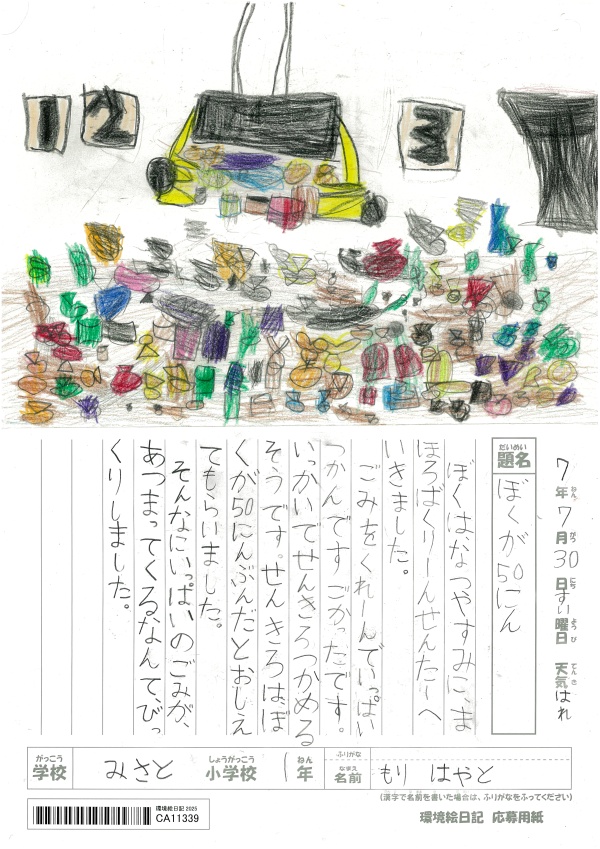 1
2
3
7年7月30日すい曜日 天気はれ
ねん
がつ
にち
ようび
てんき
だいめい
題名
ぼくが50にん
ぼくはなつやすみに、ま
ほろばくりーんせんたーへ
いきました。
ごみをくれーんでいっぱい
つかんです ごかったです。
いっかいでせんきろつかめる
そうです。せんきろは、ぼ
くが50にんぶんだとおしえ
てもらいました。
そんなにいっぱいのごみが、
あつまってくるなんて、びっ
くりしました。
がっこう
学校
みさと
しょうがっこう
小学校
1
ねん
年
ふりがな
なまえ
名前
もり はやと
(漢字で名前を書いた場合は、ふりがなをふってください)
環境絵日記 2025
CA11339
環境絵日記 応募用紙